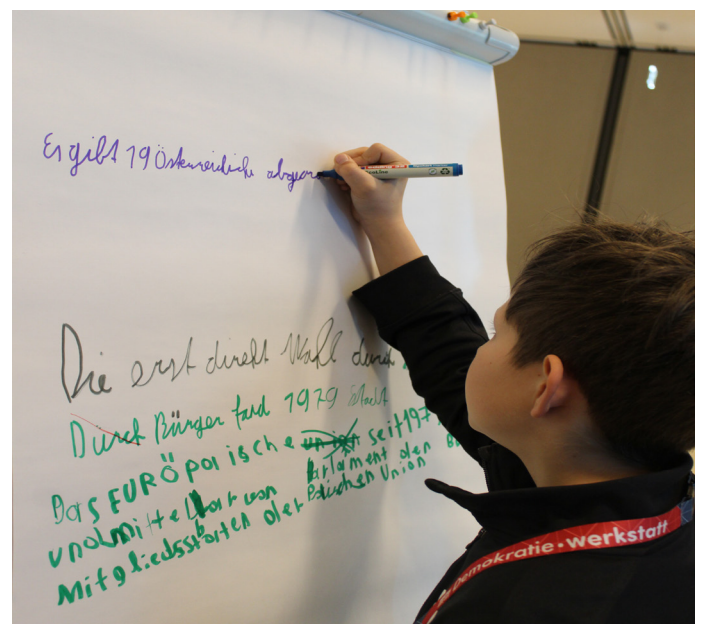 Es gibt 19 Österreichiche abgeor
Die erst direkt Wahl durch
Durch Bürger fand 1979 statt
Das EUROpaische union seit 197
Parlament den
undmittelbar von
Mitgliedsstaaten der Päischen Union
Demokratie•werkstatt